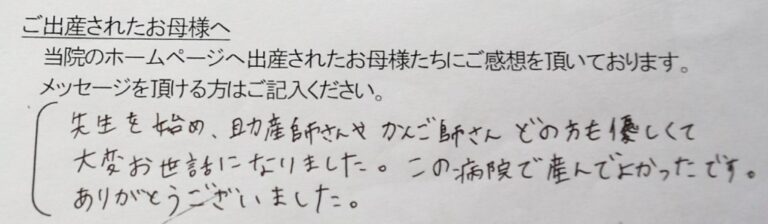 ご出産されたお母様へ
当院のホームページへ出産されたお母様たちにご感想を頂いております。
メッセージを頂ける方はご記入ください。
先生を始め、助産師さんや かんご師さん どの方も優しくて
大変お世話になりました。この病院で産んでよかったです。
ありがとうございました。